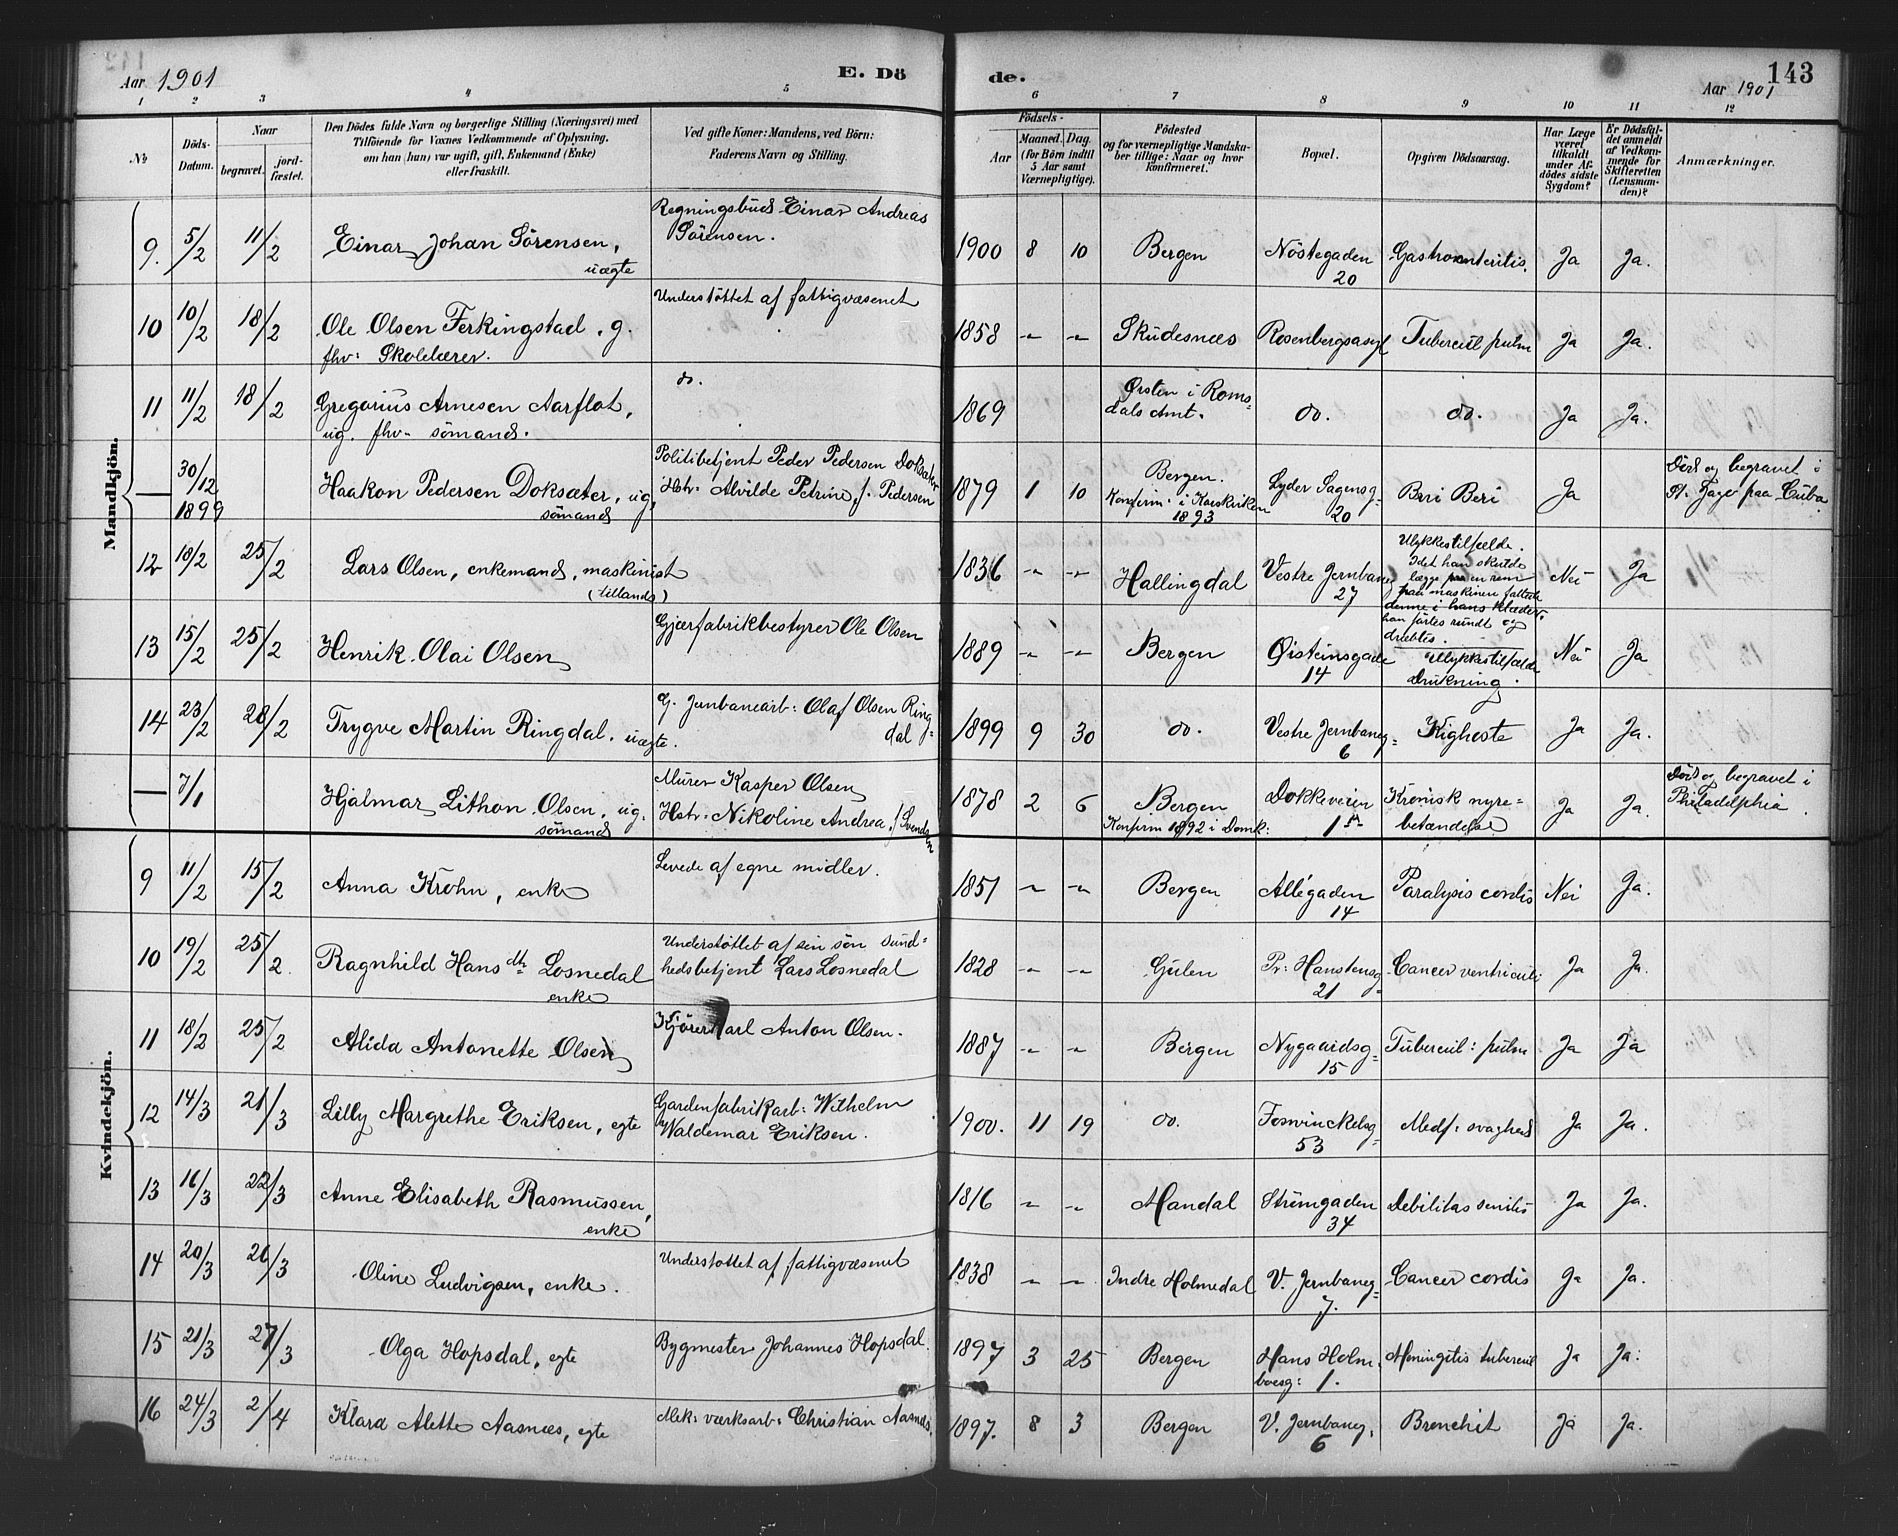 Aar 1901
E. Dö
de.
143
Aar 1901
1 2 3 4 5 6 7 8 9 10 11 12
No
Döds-Datum.
Naar
begravet.
jord-fæstet.
Den Dödes fulde Navn og borgerlige Stilling (Næringsvei) med
Tilföiende for Voxnes Vedkommende af Oplysning,
om han (hun) var ugift, gift, Enkemand (Enke)
eller fraskilt.
Ved gifte Koner: Mandens, ved Börn:
Faderens Navn og Stilling.
Födsels-
Aar
Maaned. Dag.
(for Börn indtil
5 Aar samt
Værnepligtige).
Födested
og for værnepligtige Mandska-
ber tillige: Naar og hvor
konfirmeret.
Bopæl.
Opgiven Dödsaarsag.
Har Læge
været
tilkaldt
under Af-
dödes sidste
Sygdom?
Er Dödsfal-
det anmeldt
af Vedkom-
mende for
Skifteretten
(Lensman-
den)?
Anmærkninger.
Mandkjön.
9. 5/2 11/2 Einar Johan Sörensen, uægte
Regningsbud Einar Andreas
Sörensen.
1900 8 10 Bergen Nöstegaden 20 Gastroenteritis. Ja Ja.
10 10/2 18/2 Ole Olsen Ferkingstad, g.
fhv: Skolelærer.
Understöttet af fattigvæsenet
1858 -"- -"- Skudesnæs Rosenbergsasyl Tubercul pulm Ja Ja.
11 11/2 18/2 Gregorius Arnesen Aarflot,
ug. fhv- sömand.
do.
1869 Örsten i Roms-
dals Amt. do. do. Ja Ja.
— 30/12 1899 Haakon Pedersen Doksæter, ug,
sömand
Politibetjent Peder Pedersen Doksæter
Hstr: Alvilde Petrine, f. Pedersen
1879 1 10 Bergen.
Konfirm: i Korskirken
1893
Lyder Sagensg- 20 Bri Beri Ja
Död og begravet i
St. Jago paa Cuba
12 18/2 25/2 Lars Olsen, enkemand, maskinist
(tillands)
1836 -"- -"- Hallingdal Vestre Jernbaneg 27
Ulykkestilfælde.
Idet han skulde
lægge paa en rem
paa maskinen fattede
denne i hans klæder.
han förtes rundt og
dræbtes.
Nei Ja
13 15/2 25/2 Henrik Olai Olsen
Gjærfabrikbestyrer Ole Olsen
1889 -"- -"- Bergen Öisteinsgade 14 Ulykkestilfælde
Drukning. Nei Ja
14 23/2 28/2 Trygve Martin Ringdal, uægte.
G. Jernbanearb: Olaf Olsen Ring-
dal
1899 9 30 do. Vestre Jernbaneg- 6 Kighoste Ja Ja.
— 7/1 Hjalmar Lithon Olsen, ug.
sömand
Murer Kasper Olsen
Hstr: Nikoline Andrea, f. Svendsen
1878 2 6 Bergen
Konfirm 1892 i Domk:
Dokkeveien 1 Kronisk nyre-
betændelse Ja Ja.
Död og begravet i
Philadelphia
Kvindekjön.
9 11/2 15/2 Anna Krohn, enke
Levede af egne midler.
1851 -"- -"- Bergen Allégaden 14 Paralysis cordis Nei Ja.
10 19/2 25/2 Ragnhild Hansdtr Losnedal
enke
Understöttet af sin sön sund-
hedsbetjent Lars Losnedal
1828 -"- -"- Gulen Pr: Hanstensg- 21 Cancer ventriculi Ja Ja.
11 18/2 25/2 Alida Antonette Olsen
Kjörerkarl Anton Olsen.
1887 -"- -"- Bergen Nygaardsg- 15 Tubercul: pulm Ja Ja
12 14/3 21/3 Lilly Margrethe Eriksen, egte
Gardenfabrikarb: Wilhelm
Waldemar Eriksen.
1900. 11 19 do. Fosvinckelsg- 53 Medf: svaghed Ja Ja.
13 16/3 22/3 Anne Elisabeth Rasmussen,
enke
1816 -"- -"- Mandal Strömgaden 34 Debilitas senilis Ja Ja.
14 20/3 26/3 Oline Ludvigsen, enke.
Understottet af fattigvæsenet
1838 -"- -"- Indre Holmedal V. Jernbaneg- 7. Cancer cordis Ja Ja.
15 21/3 27/3 Olga Hopsdal, egte
Bygmester Johannes Hopsdal.
1897 3 25 Bergen Hans Holm-
boesg: 1. Meningitis tubercul Ja Ja.
16 24/3 2/4 Klara Alette Aasnæs, egte
Mek: værksarb: Christian Aasnæs.
1897. 8 3 Bergen V. Jernbaneg, 6 Bronchit Ja Ja.